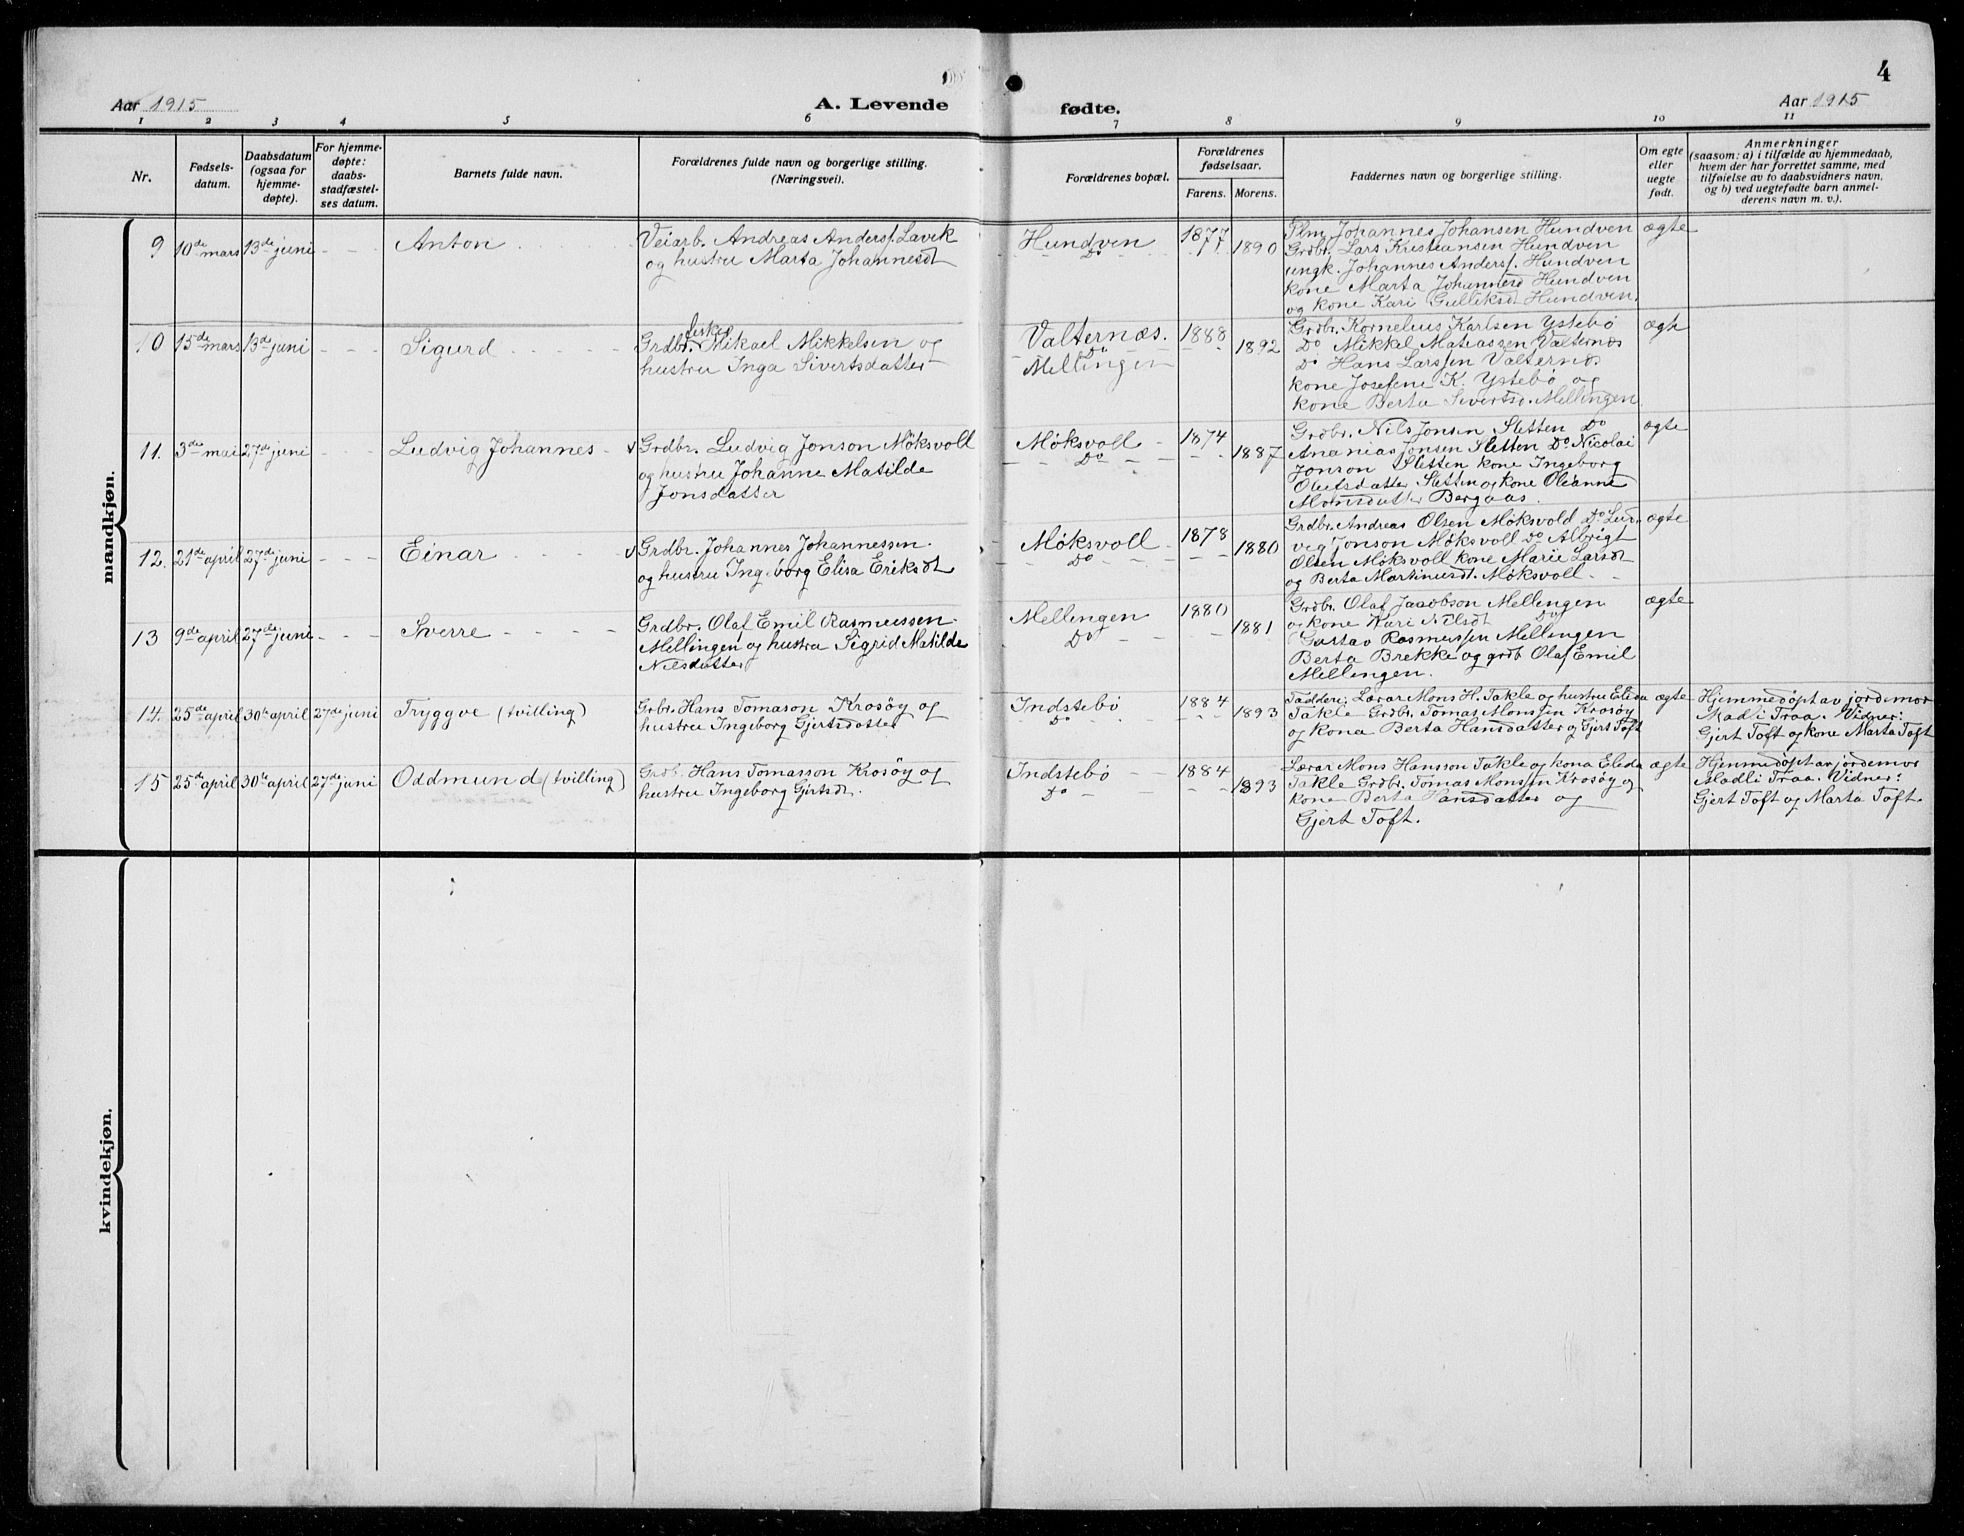 4
Aar 1915
A. Levende
fødte.
Aar 1915
1 2 3 4 5 6 7 8 9 10 11
Nr.
Fødsels-
datum.
Daabsdatum
(ogsaa for
hjemme-
døpte).
For hjemme-
døpte:
daabs-
stadfæstel-
ses datum.
Barnets fulde navn.
Forældrenes fulde navn og borgerlige stilling.
(Næringsvei).
Forældrenes bopæl.
Forældrenes
fødselsaar.
Farens. Morens.
Faddernes navn og borgerlige stilling.
Om egte
eller
uegte
født.
Anmerkninger
(saasom: a) i tilfælde av hjemmedaab,
hvem der har forrettet samme, med
tilføielse av to daabsvidners navn,
og b) ved uegtefødte barn anmel-
derens navn m. v.).
mandkjøn.
9 10de mars 13de juni - - - Anton
Veiarb. Andreas Anders. Lavik
og hustru Marta Johannesdt
Hundven
Do
1877 1890
Johannes Johansen Hundven
Grdbr. Lars Kristiansen Hundven
ungk. Johannes Anders. Hundven
kone Marta Johannesd Hundven
og kone Kari Gulliksdt Hundven.
ægte
10 15de mars 13de juni - - - Sigurd
fisker
Grdbr. Mikael Mikkelsen og
hustru Inga Sivertsdatter
Valternæs.
Do
Mellingen
1888 1892
Grdbr. Kornelius Karlsen Ystebø
Do Mikkel Matiassen Valternæs
Do Hans Larssen Valternæs
kone Josefene K. Ystebø og
kone Berta Sivertsd. Mellingen
ægte
11. 3de mai 27de juni - - - Ludvig Johannes
Grdbr. Ludvig Jonson Møksvoll
og hustru Johanne Matilde
Jonsdatter
Møksvoll
Do
1874 1887
Grdbr. Nils Jonsen Sletten Do
Ananias Jonsen Sletten Do Nicolai
Jonson Sletten kone Ingeborg
Olufsdatter Sletten og kone Oleanne
Monsdatter Bergaas.
ægte
12. 21de april 27de juni - - - Einar
Grdbr. Johannes Johannessen
og hustru Ingeborg Elisa Eriksdt
Møksvoll
Do
1878 1880
Grdbr. Andreas Olsen Møksvold Do Lud-
vig Jonson Møksvoll Do Albrigt
Olsen Møksvoll kone Marie Larsdt
og Berta Martinusdt. Møksvoll
ægte
13 9de april 27de juni - - - Sverre
Grdbr. Olaf Emil Rasmussen
Mellingen og hustru Sigrid Matilde
Nilsdatter
Mellingen
Do
1880 1881
Grdbr. Olaf Jacobson Mellingen
og kone Kari Nilsdt Do
Gustav Rasmussen Mellingen
Berta Brekke og grdb Olaf Emil
Mellingen.
ægte
14. 25de april 30te april 27de juni Tryggve (tvilling)
Grbr. Hans Tomason Krosøy og
hustru Ingeborg Gjertsdatter
Indstebø
Do
1884 1893
Fadderi, Lærar Mons H. Takle og hustru Elida
Takle Grdbr. Tomas Monssen Krosøy
og kona Berta Hansdatter og Gjert Toft
ægte
Hjemmedøpt av jordemor
Madli Traa. Vidner:
Gjert Toft og kone Marta Toft
15 25de april 30te april 27de juni Oddmund (tvilling)
Grdb. Hans Tomasson Krosøy og
hustru Ingeborg Gjertsdt.
Indstebø
Do
1884 1893
Lærar Mons Hansson Takle og kona Elida
Takle Grdbr. Tomas Monssen Krosøy og
kone Berta Hansdatter og
Gjert Toft.
ægte
Hjemmedøpt av jordemor
Madli Traa. Vidner:
Gjert Toft og Marta Toft.
kvindekjøn.